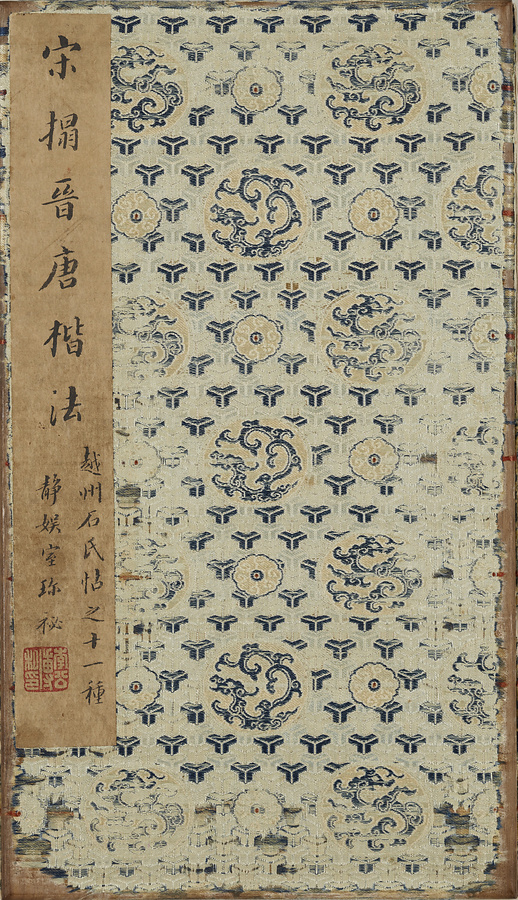 宋搨晉唐楷法
越州石氏帖之十一種
靜娛室珍秘